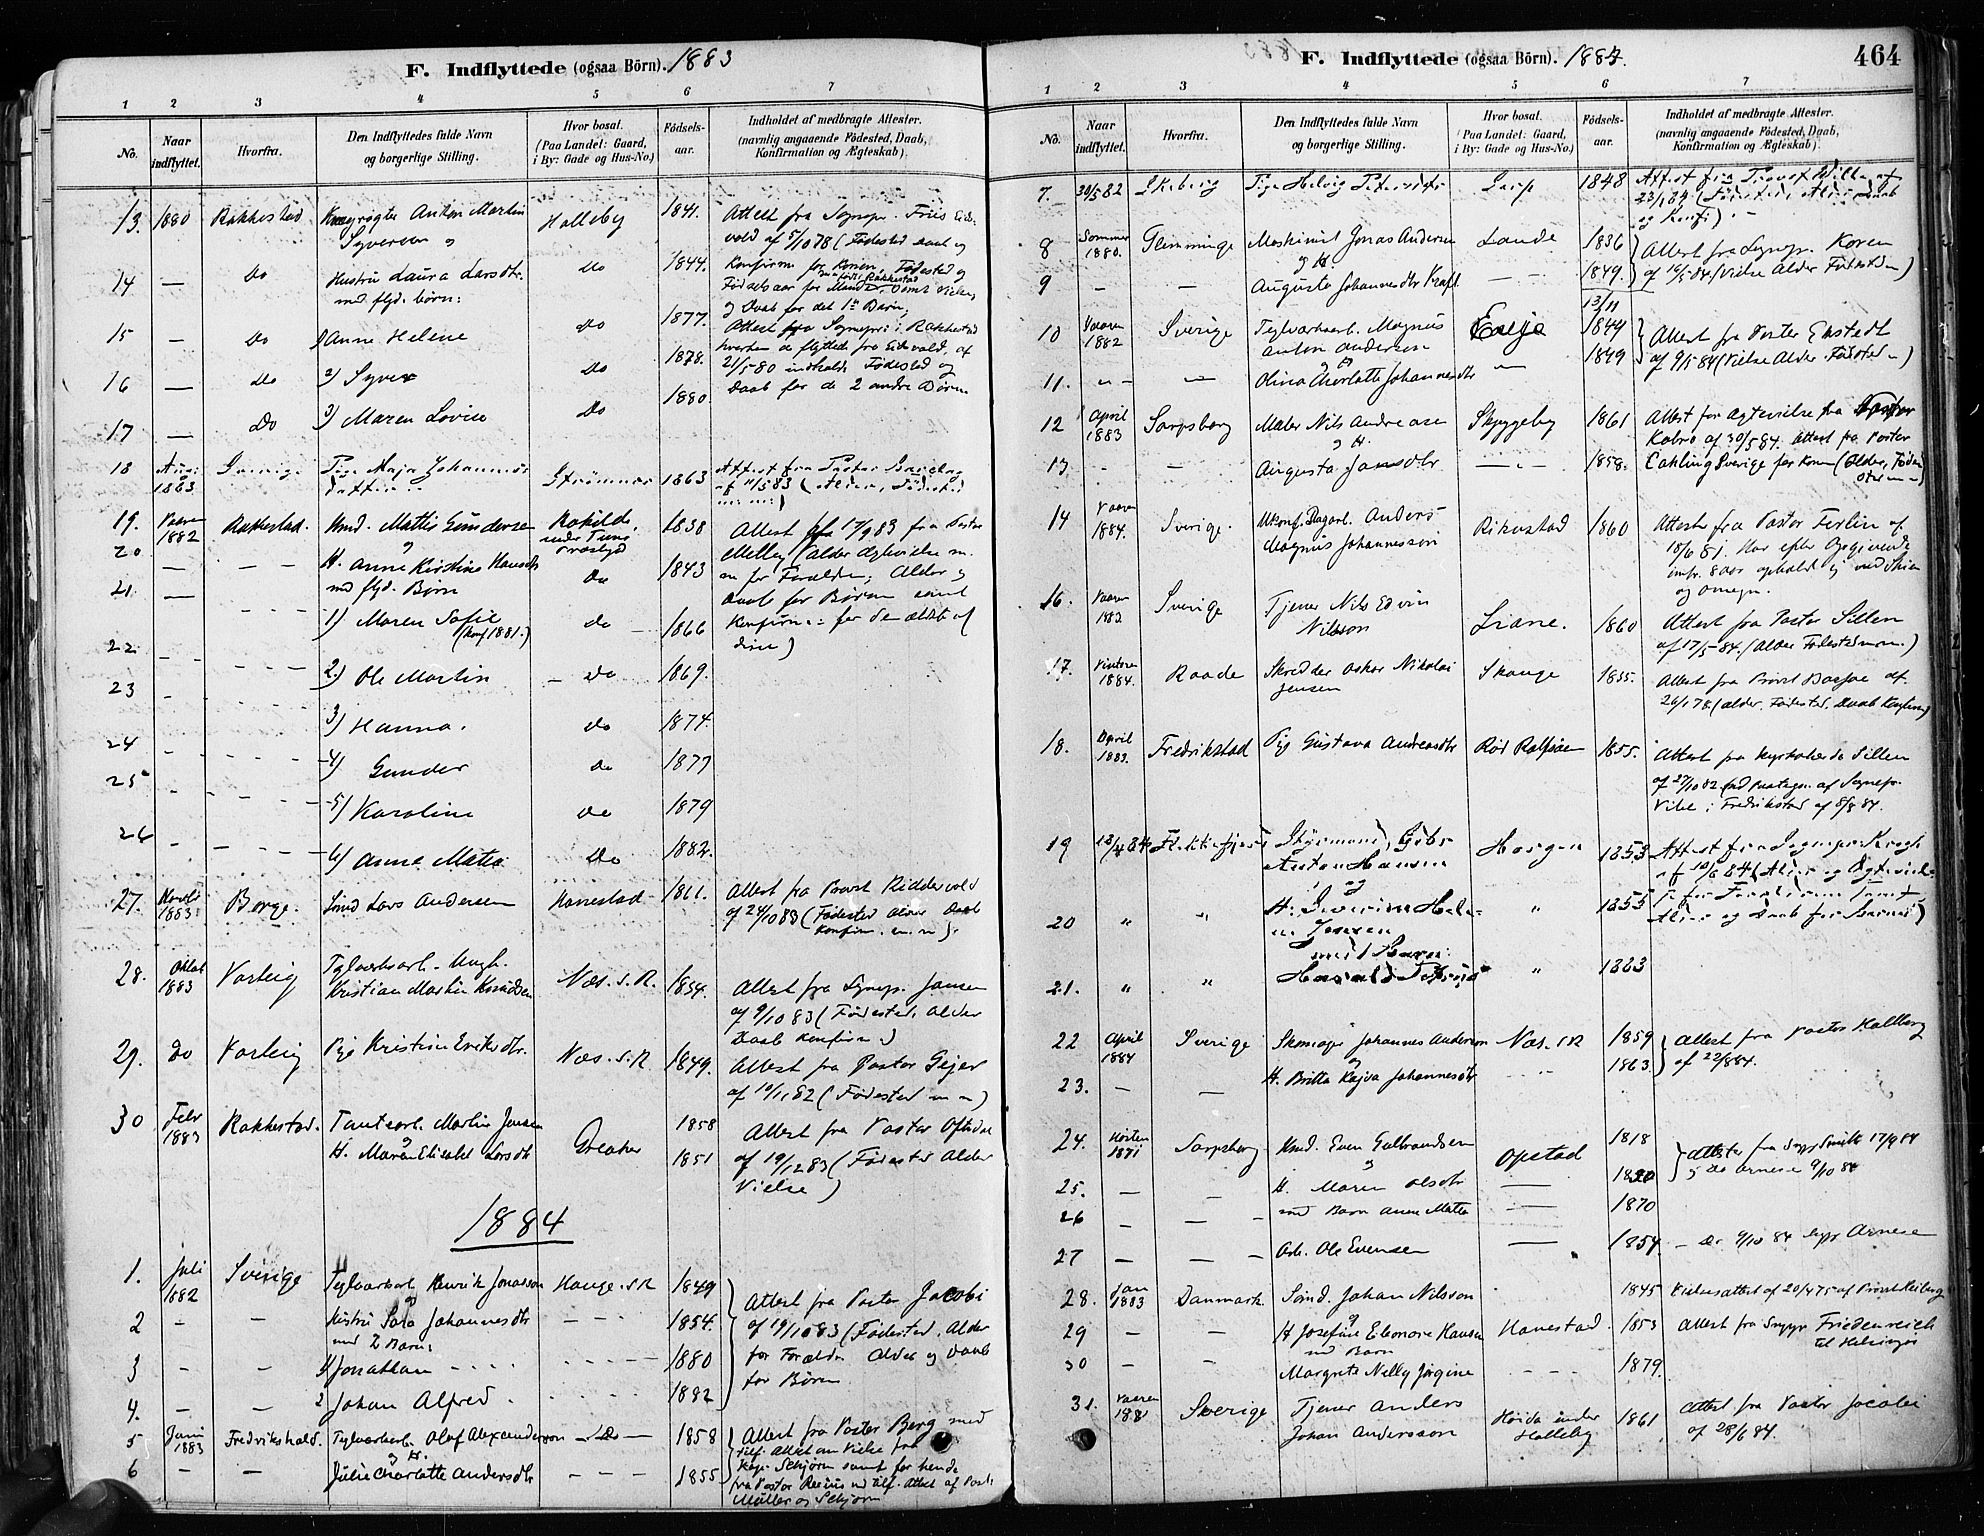 F. Indflyttede (ogsaa Börn). 1883
1 2 3 4 5 6 7
No. Naar indflyttet. Hvorfra. Den Indflyttedes fulde Navn og borgerlige Stilling. Hvor bosat. (Paa Landet: Gaard, i By: Gade og Hus-No.) Födsels-aar. Indholdet af medbragte Attester. (navnlig angaaende Födested, Daab, Konfirmation og Ægteskab).
13. 1880 Rakkestad Anton Martin Syversen og Halleby 1841. Attest fra Sognepr. Friis Eids-
vold af 5/10 78 (Fødested Daab og
14 — Do Hustru Laura Larsdtr. Do 1844. Konfirm for Konen, Fødested og
med flgd. børn: Fødselsaar for Manden, samt Vielse,
og Daab for det 1ste Barn;
15 — Do 1) Anne Helene Do 1877. Attest fra Sognepr. i Rakkestad
hvorhen de flyttede fra Eidsvold, af
16 — Do 2) Syver Do 1878. 21/5 80 indhold. Fødested og
Daab for de 2 andre Børn
17 — Do 3) Maren Lovise Do 1880.
18 1883 Sverige Pige Maja Johannes-
datter Strömnes 1863 Attest fra Pastor
af 11/5 83 (Alder, Fødested
19. Vaaren 1882 Rakkestad. Kmd. Mattis Gundersen Rokilde under Tune 1838 Attest af 17/9 83 fra Pastor
og
20 — — — H. Anne Kirstine Hansdtr Do 1843 Melbey (alder ægtevielse m.
m for Forældre; Alder og
21. — med flgd. Børn Daab for Børnene samt
1) Maren Sofie (konf 1881.) do 1866 Konfirm: for den ældste af
disse)
22 2) Ole Martin — Do 1869.
23 3) Hanna. do 1874.
24 4) Gunder Do 1877
25 5) Karoline do 1879
26 6) Anna Matea Do 1882.
27. 1883. Berge. Smd Lars Andersen Hannestad 1861. Attest fra Provst Riddervold
af 24/10 83 (Fødested Alder Daab
Konfirm. m. m).
28. Oktob 1883 Varteig Teglværksarb. Ungk. Kristian Martin Knudsen Næs. S. R. 1854. Attest fra Sognep. Jansen
af 9/10 83 (Fødested, Alder
Daab Konfirm)
29. Do Varteig Pige Kristine Eriksdtr. Næs. S. R 1849. Attest fra Pastor Gejer
af 19/11 82 (Fødested m m)
30 Febr 1883 Rakkestad. Tomtearb. Martin Jensen 1858 Attest fra Pastor Oftedal
og Greaker
H. Maren Elisabet Larsdtr 1851 af 19/12 83 (Fødested Alder
Vielse)
1884
1. Juli 1882 Sverige Teglværkarb. Henrik Jonasson Hauge. S R 1849 Attest fra Pastor Jacobi
2 — — Hustru Sara Johannesdtr 1854. af 19/10 83 (Fødested, Alder
med 2 Børn: for Forældre Alder og Daab
3 — — 1) Jonathan 1880 for Børn
4. — — 2 Johan Alfred 1882
5 Juni 1883 Fredrikshald. Teglværkarb. Olaf Alexanderson — Do — 1858 Attest fra Pastor Berg med
og H. tilf. Attest om Vielse fra
6 — — Julie Charlotte Andersdtr — — — 1855 Kap. Schjörn samt for hende
fra Pastor med tilf. Attest af Past.
Müller og Schjörn
F. Indflyttede (ogsaa Börn). 1884. 464
1 2 3 4 5 6 7
No. Naar indflyttet. Hvorfra. Den Indflyttedes fulde Navn og borgerlige Stilling. Hvor bosat. (Paa Landet: Gaard, i By: Gade og Hus-No.) Födsels-aar. Indholdet af medbragte Attester. (navnlig angaaende Födested, Daab, Konfirmation og Ægteskab).
7. 30/5 82 Skeberg Pige Helvig Petersdtr Sarp 1848 Attest fra Provst Wille af
23/1 84 (Fødested, Alder, Daab
og Konf.).
8 Sommer 1880. Flemminge Maskinist Jonas Andersen Lande 1836 Attest fra Sognepr. Koren
og H.
9 — — Augusta Johannesdtr Kraft — 1849. af 16/5 84 (Vielse Alder Fødested m)
10 Vaaren 1882 Sverige Teglværksarb. Magnus Anton Anderson Eneje 13/11 1844 Attest fra Pastor Ekstedt
og
11. — — Olina Charlotte Johannesdtr — 1849 af 9/5 84 (Vielse Alder Fødested m)
12 April 1883 Sarpsborg Maler Nils Andreasen Skyggeby 1861 Attest for Ægtevielse fra Pastor
og H. Kobro af 30/5 84. Attest fra Pastor
13 — — Augusta Jansdtr — 1858. Cahling Sverige for Konen (Alder, Føde-
sted m m)
14 Vaaren 1884. Sverige. Ukonf. Dagarb. Anders Magnus Johannesson Rikustad 1860 Attest fra Pastor Ferlin af
18/6 81. Har efter Opgivende
omtr. 8 aar opholdt sig ved Skien
og Omegn.
16. Vaaren 1882 Sverige Tjener Nils Edvin Nilsson Liane. 1860 Attest fra Pastor Sillen
af 17/5 84. (Alder Fødested m m.)
17. Vinteren 1884. Raade Skrædder Oskar Nikolai Jensen Skauge 1855. Attest fra Provst af
26/1 78. (Alder. Fødested. Daab Konfirm)
18. April 1883. Fredrikstad Pige Gustava Andreasdtr Röd Rolfsöen 1855. Attest fra Kyrkoherde Sillen
af 27/10 82 med Paategn. af Sognepr.
Vibe i Fredrikstad af 5/8 84.
19 18/4 84 Flekkefjord Styrmand, Gift Anton Hansen Hasgen 1853 Attest fra Sognepr. Krogh
og af 10/6 84 (Alder og Ægtevielse
20 " " H. Severine Helene Jensen " 1855 for Forældrene samt
med Barn: Alder og Daab for Barnet)
21. " " Harald " 1883
22 April 1884 Sverige Skomager Johannes Anderson Næs. S R 1859 Attest fra Pastor Hallberg
og
23. — — H. Britta Kajsa Johannesdtr 1863 af 22/8 84.
24. Høsten 1871 Sarpsborg Kmd. Even Gulbrandsen Opstad 1818 Attester fra Sogpr Smith 17/9 84
og og Do Arnesen 9/10 84
25. — — H. Maren Olsdtr — 1820
26 — — med Barn Anne Mathea — 1870
27 — — Arb. Ole Evensen — 1854. — Do 9/10 84 Sogpr Arnesen
28. Jan 1883 Danmark. Smd. Johan Nilsson 1845 Vielsesattest af 20/4 75 af Provst
og
29 — — H Josefine Eleonore Hansen Hannestad. 1853 Attest fra Sogpr Friedenreich
med Barn til Helsingør
30 — — Margrete Nelly Jørgine 1879.
31. Vaaren 1881 Sverige Tjener Anders Johan Andersson Høida under Halleby 1861 Attest fra Pastor Jacobi
af 28/6 84.